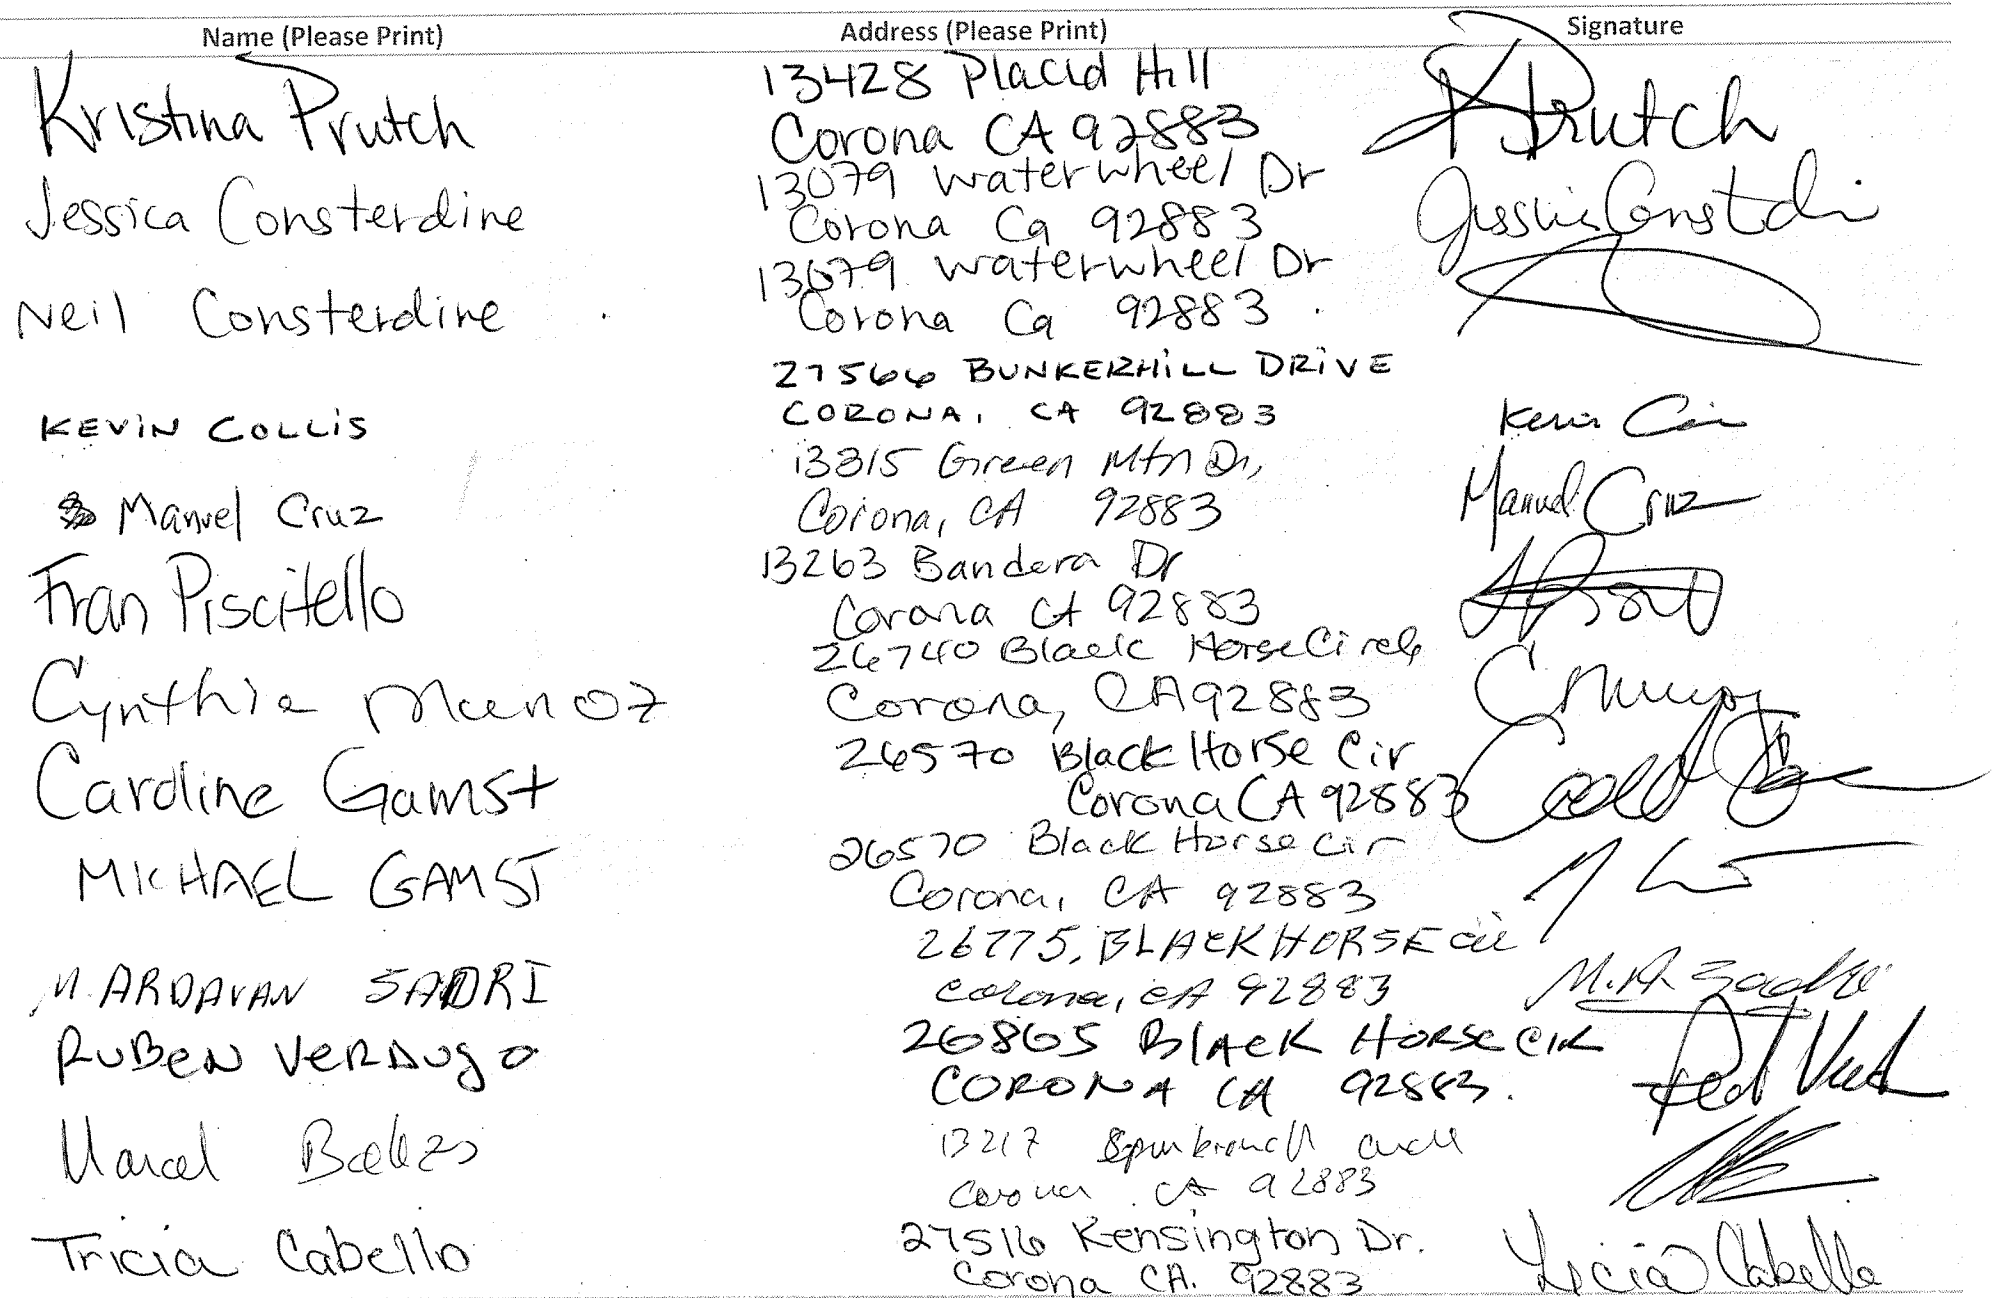 Name (Please Print) Address (Please Print) Signature
Kristina Prutch 13428 Placid Hill KPrutch
Corona CA 92883
Jessica Consterdine 13079 Waterwheel Dr
Corona Ca 92883
Neil Consterdine 13079 Waterwheel Dr
Corona Ca 92883
KEVIN COLLIS 27566 BUNKERHILL DRIVE
CORONA, CA 92883
Manuel Cruz 13315 Green Mtn Dr, Manuel Cruz
Corona, CA 92883
Fran Piscitello 13263 Bandera Dr
Corona CA 92883
Cynthia Munoz 26740 Black Horse Circle C Munoz
Corona, CA 92883
Caroline Gamst 26570 Black Horse Cir
Corona CA 92883
MICHAEL GAMST 26570 Black Horse Cir
Corona, CA 92883
M. ARDAVAN SADRI 26775, BLACK HORSE CIR
Corona, CA 92883
RUBEN VERDUGO 26865 BLACK HORSE CIR
CORONA CA 92883.
Marcel 13217
Corona CA 92883
Tricia Cabello 27516 Kensington Dr. Tricia Cabello
Corona CA. 92883